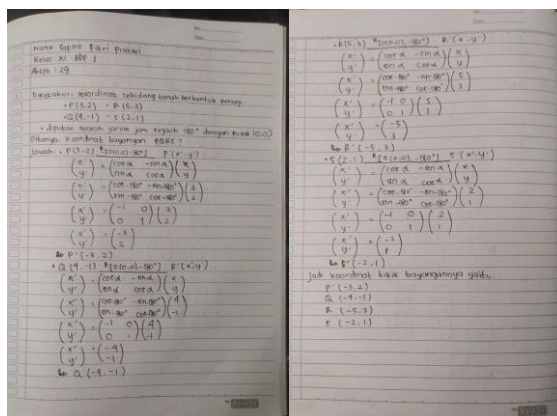 Nama : Sapina Fitri Pratiwi
Kelas : XI-
Absen : 29
Diketahui : koordinat sebidang tanah berbentuk persegi
• P(3,2) • R(5,3)
• Q(4,-1) • S(2,1)
• diputar searah jarum jam sejauh 180° dengan pusat (0,0)
Ditanya : koordinat bayangan PQRS?
Jawab : • P(3,2) R[0(0,0),-180°] P'(x',y')
(x' y') = (cos α -sin α sin α cos α)(x y)
(x' y') = (cos-180° -sin-180° sin-180° cos-180°)(3 2)
(x' y') = (-1 0 0 1)(3 2)
(x' y') = (-3 2)
P'(-3,2)
• Q(4,-1) R[0(0,0),-180°] Q'(x',y')
(x' y') = (cos α -sin α sin α cos α)(x y)
(x' y') = (cos-180° -sin-180° sin-180° cos-180°)(4 -1)
(x' y') = (-1 0 0 1)(4 -1)
(x' y') = (-4 -1)
Q'(-4,-1)
• R(5,3) R[0(0,0),-180°] R'(x',y')
(x' y') = (cos α -sin α sin α cos α)(x y)
(x' y') = (cos-180° -sin-180° sin-180° cos-180°)(5 3)
(x' y') = (-1 0 0 1)(5 3)
(x' y') = (-5 3)
R'(-5,3)
• S(2,1) R[0(0,0),-180°] S'(x',y')
(x' y') = (cos α -sin α sin α cos α)(x y)
(x' y') = (cos-180° -sin-180° sin-180° cos-180°)(2 1)
(x' y') = (-1 0 0 1)(2 1)
(x' y') = (-2 1)
S'(-2,1)
Jadi koordinat titik bayangannya yaitu :
P'(-3,2)
Q(-4,-1)
R(-5,3)
S(-2,1)